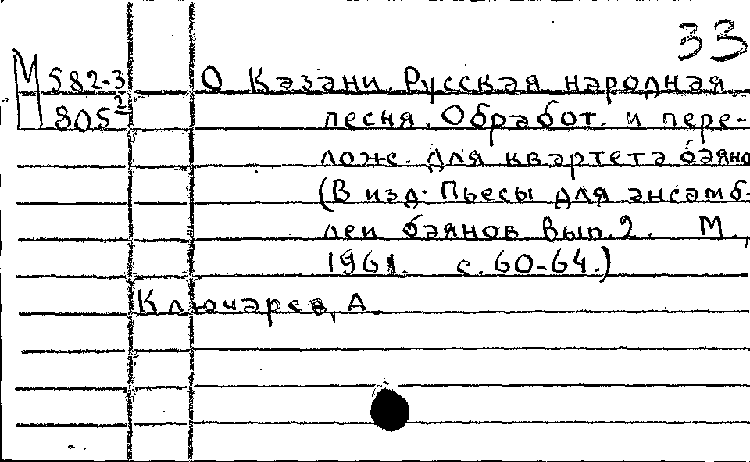 33
М 582-3 О Казани. Русская народная
805² песня. Обработ. и пере-
лож. для квартета баяно
(В изд. Пьесы для энсамб-
лей баянов вып. 2. М.,
1961. с. 60-64.)
Ключарев, А.